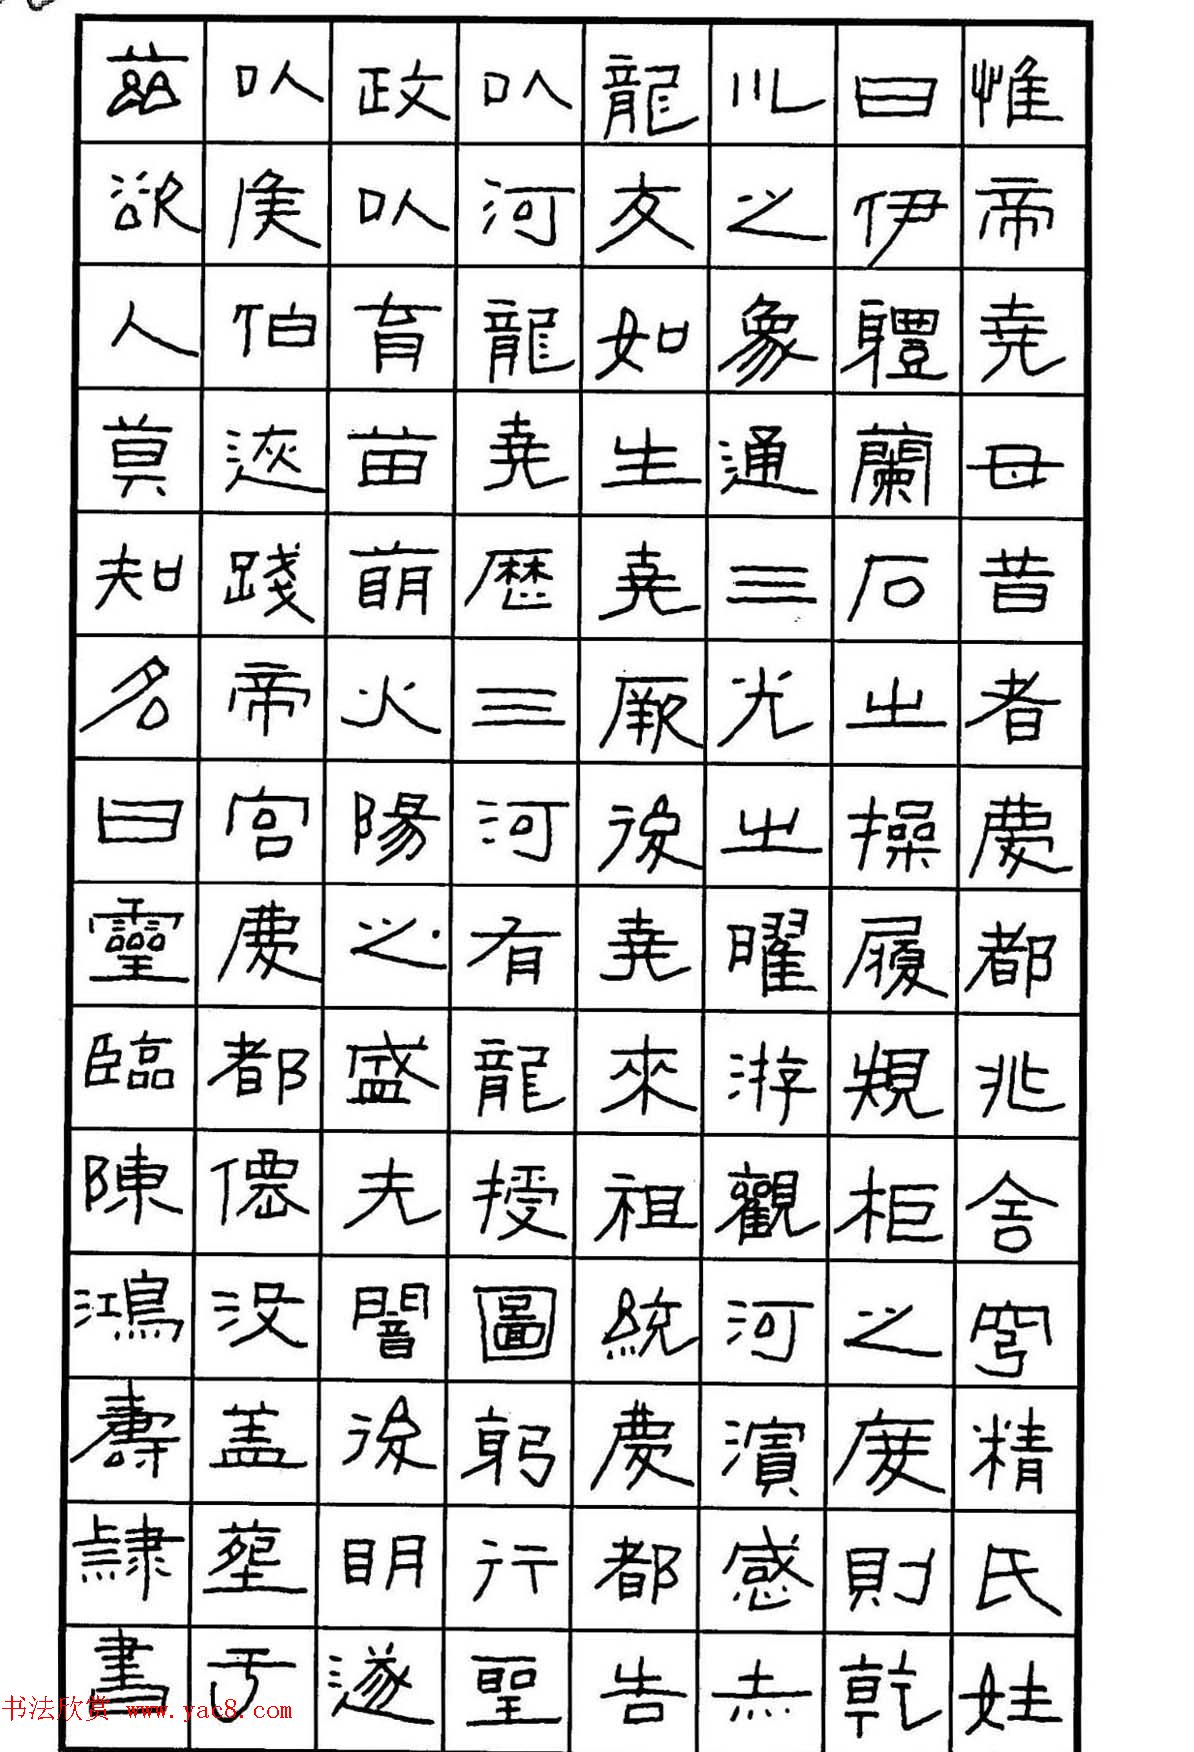 惟帝堯母昔者慶都兆舍穹精氏姓
曰伊軆蘭石之操履規柜之度則乾
川之象通三光之曜游觀河濱感赤
龍交如生堯厥後堯來祖統慶都告
以河龍堯歷三河有龍授圖躬行聖
政以育苗萌火陽之盛先闇後明遂
以侯伯踐帝宮慶都僊没盖葬于
茲欲人莫知名曰靈臨陳鴻壽隸書
书法欣赏 www.yac8.com